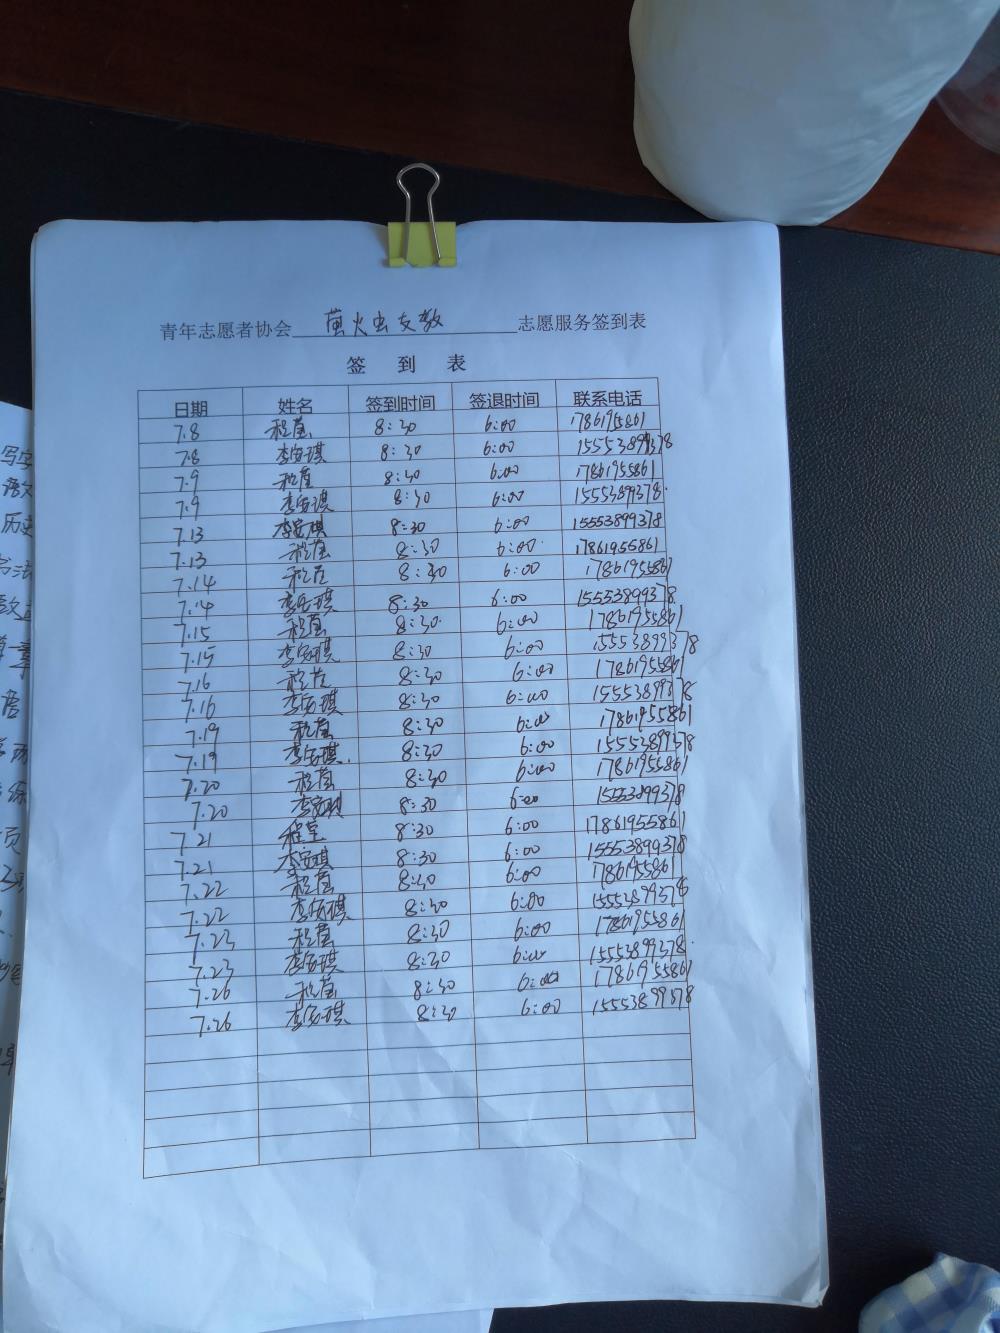 青年志愿者协会 萤火虫支教 志愿服务签到表
签 到 表
日期 姓名 签到时间 签退时间 联系电话
7.8 程莹 8:30 6:00 17861955861
7.8 李安琪 8:30 6:00 15553899378
7.9 程莹 8:30 6:00 17861955861
7.9 李安琪 8:30 6:00 15553899378
7.13 李安琪 8:30 6:00 15553899378
7.13 程莹 8:30 6:00 17861955861
7.14 程莹 8:30 6:00 17861955861
7.14 李安琪 8:30 6:00 15553899378
7.15 程莹 8:30 6:00 17861955861
7.15 李安琪 8:30 6:00 15553899378
7.16 程莹 8:30 6:00 17861955861
7.16 李安琪 8:30 6:00 15553899378
7.19 程莹 8:30 6:00 17861955861
7.19 李安琪 8:30 6:00 15553899378
7.20 程莹 8:30 6:00 17861955861
7.20 李安琪 8:30 6:00 15553899378
7.21 程莹 8:30 6:00 17861955861
7.21 李安琪 8:30 6:00 15553899378
7.22 程莹 8:30 6:00 17861955861
7.22 李安琪 8:30 6:00 15553899378
7.23 程莹 8:30 6:00 17861955861
7.23 李安琪 8:30 6:00 15553899378
7.26 程莹 8:30 6:00 17861955861
7.26 李安琪 8:30 6:00 15553899378